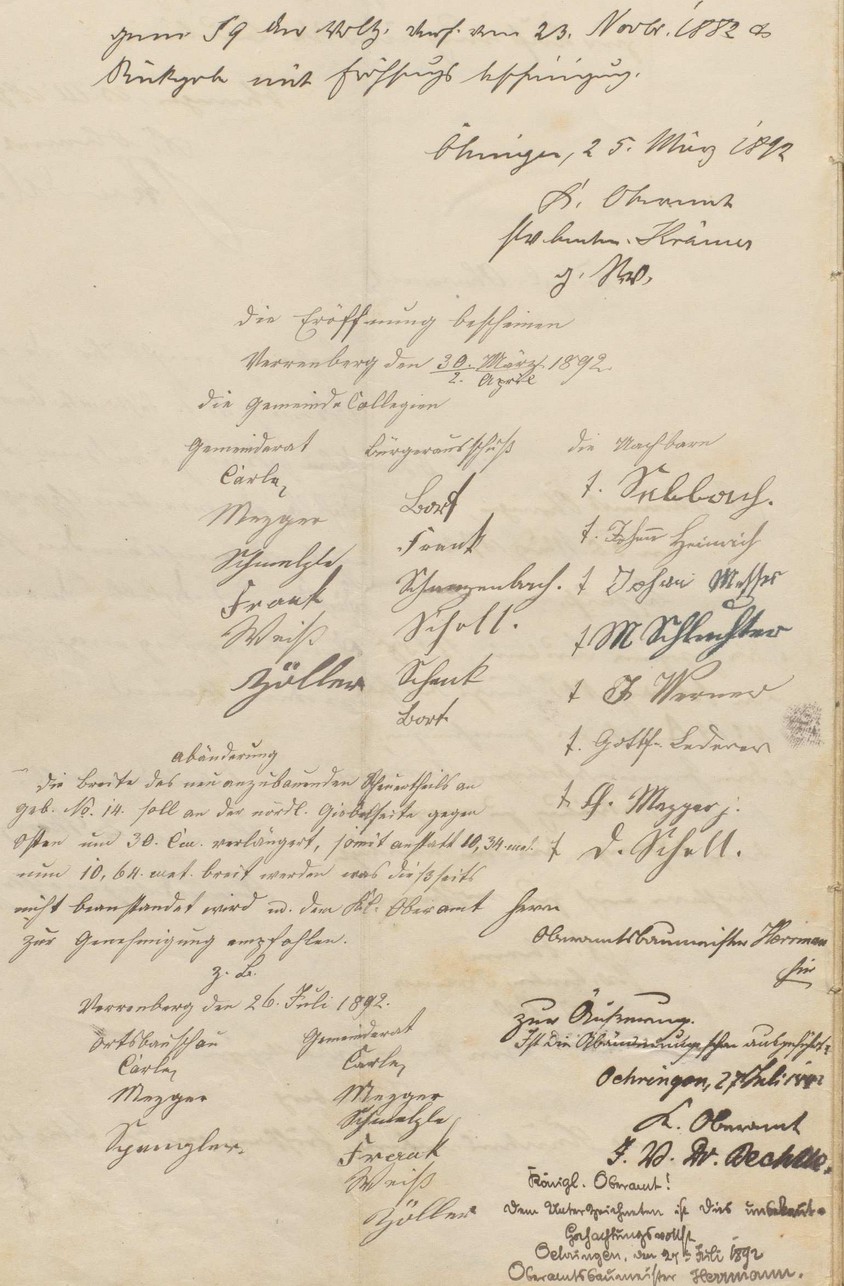 § 9 der Vollz. Verf. vom 23. Novbr. 1882
Rückgabe mit Eröffnungsbescheinigung.
Öhringen, 25. März 1892
K. Oberamt
Krämer
die Eröffnung bescheinen
Verrenberg den 30. März 1892.
2. April
die Gemeinde Collegien
Gemeinderat
Carle
Mezger
Schmelzle
Frank
Weiß
Zöller
Bürgerausschuß
Bort
Frank
Schanzenbach.
Scholl.
Schenk
Bort
die Nachbarn
t. Johann Heinrich
t Johan Messer
t M Schluchter
t J Werner
t. Gottfr. Lederer
t. Ch. Mezger j.
t D. Scholl.
Abänderung
Die Breite des neu anzubauenden Scheuertheils an
Geb. No. 14. soll an der nördl. Giebelseite gegen
Osten um 30. Cm. verlängert, somit anstatt 10,34 met.
nun 10,64. met. breit werden was dießseits
nicht beanstandet wird u. dem Kl. Oberamt
zur Genehmigung empfohlen.
z. B.
Verrenberg den 26. Juli 1892.
Ortsbauschau
Carle
Mezger
Spengler.
Gemeinderat
Carle
Mezger
Schmelzle
Frank
Weiß
Zöller
Herrn
Oberamtsbaumeister Herrmann
hier
zur Äußerung.
Ist die Abänderung schon ausgeführt?
Oehringen, 27 Juli 1892
K. Oberamt
J. V. Dr. Bechtle.
Königl. Oberamt!
Dem Unterzeichneten ist dies unbekannt.
Hochachtungsvollst
Oehringen, den 27 Juli 1892
Oberamtsbaumeister Herrmann.